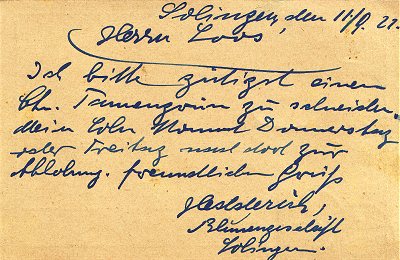 Solingen, den 11/9. 22.
Herrn Loos,
Ich bitte gütigst einen
Ctn. Tannengrün zu schneiden
mein Sohn kommt Donnerstag
oder Freitag nach dort zur
Abholung. freundlichen Gruß
Blumengeschäft
Solingen.